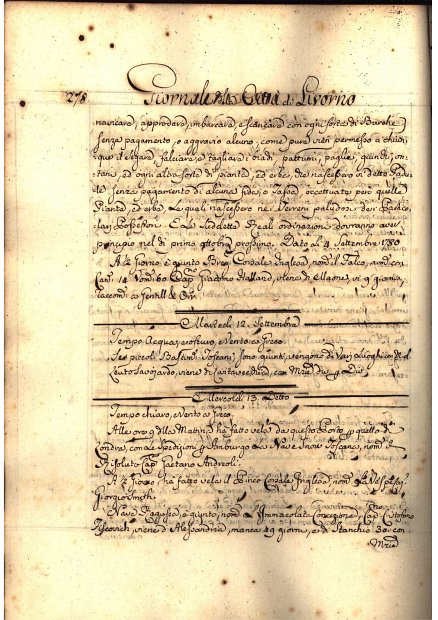 278 Giornale della Città di Livorno
navicare, approdare, imbarcare, e scaricare con ogni sorte di Barche
senza pagamento, o aggravio alcuno, come pure vien permesso a chiun
que il segare, falciare, e tagliare i giadi, pattumi, paglie, giunchi, on
tani, ed ogni altra sorte di piante, ed erbe, che nascessero in detto Padu
le senza pagamento di alcuna fide, o Tassa, eccettuate però quelle
Piante, ed erbe, le quali nascessero ne' Terreni palidosi dei Partico
lari Possessori. E le suddette Reali ordinazioni dovranno aver
principio nel dì primo ottobre prossimo. Dato li 4 Settembre 1780
giorno è giunto Corsale Inglese, nom.° il Falco, arm. con
Can. 14 Uom. 60 Cap. Giacomo Halland, viene di Maone, in 9 giorni,
raccom. a
Martedì 12. Settembre
Tempo Acqua, e oscuro, e Vento a Greco.
Sei piccoli Bastim. Toscani, sono giunti, vengono da Varj luoghi con
Leuto Savojardo, viene di
Mercoledì 13. Detto
Tempo chiaro, e Vento a Greco.
Alle ore 9 della Mattina ha fatto vela da questo Porto, p quello di
Londra, con la Spedizione p Amburgo la Nave Toscana, nom.
Risoluto Cap. Gaetano Androli.
giorno ha fatto vela il Pinco Corsale Inglese, nom.
Giorgio Smith.
Nave Ragusea è giunto, nom. L'Immacolata Concezione, Cap. Cristofano
viene d'Alessandria, manca 49 giorni, e di Stanchio 30. con